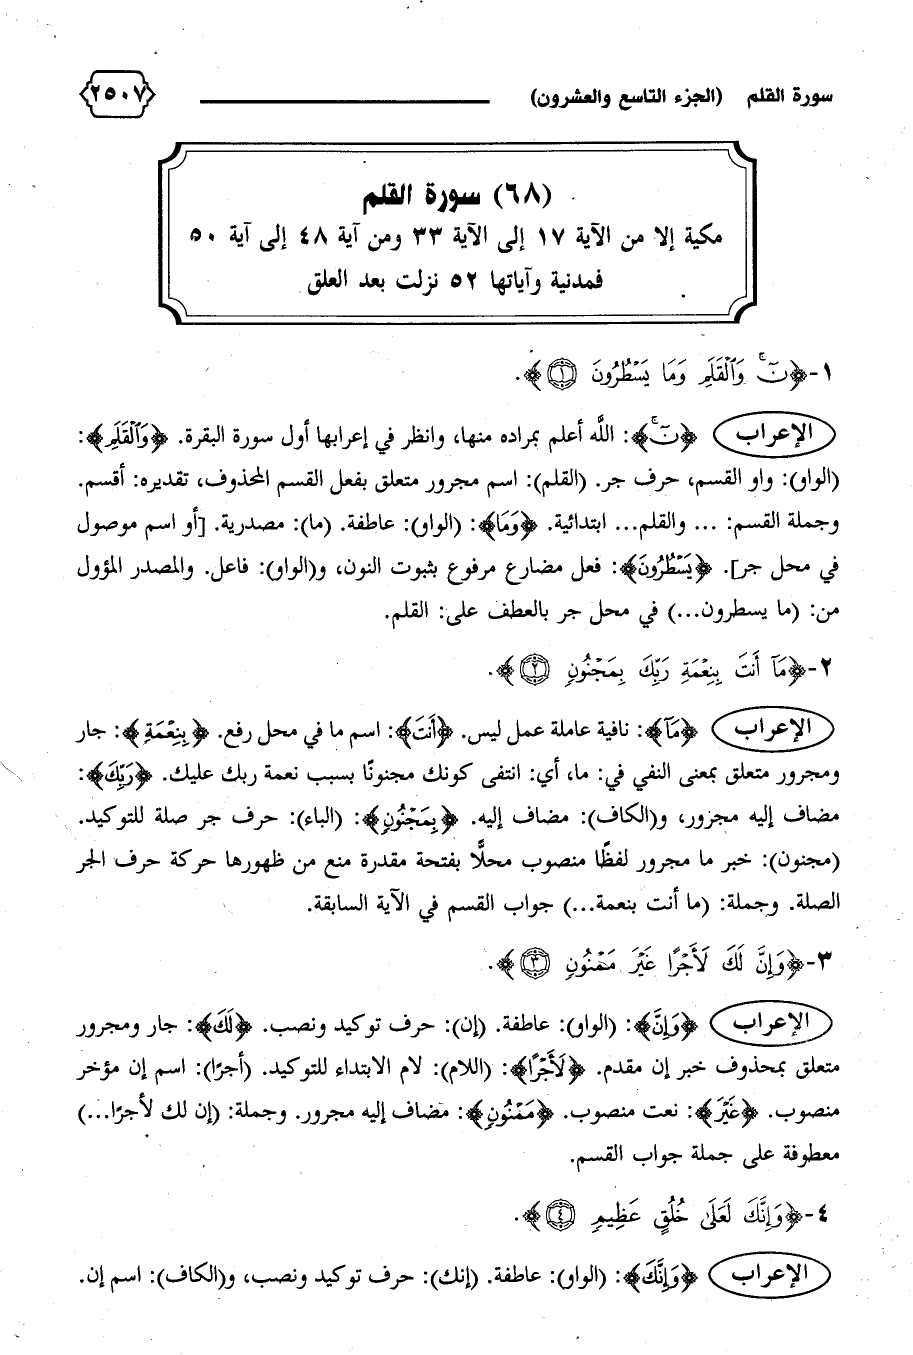 سورة القلم (الجزء التاسع والعشرون) ٢٥٠٧
(٦٨) سورة القلم
مكية إلا من الآية ١٧ إلى الآية ٣٣ ومن آية ٤٨ إلى آية ٥٠
فمدنية وآياتها ٥٢ نزلت بعد العلق
١-﴿نٓ ۚ وَٱلْقَلَمِ وَمَا يَسْطُرُونَ ١﴾.
الإعراب ﴿نٓ ۚ﴾: اللَّه أعلم بمراده منها، وانظر في إعرابها أول سورة البقرة. ﴿وَٱلْقَلَمِ﴾:
(الواو): واو القسم، حرف جر. (القلم): اسم مجرور متعلق بفعل القسم المحذوف، تقديره: أقسم.
وجملة القسم: ... والقلم... ابتدائية. ﴿وَمَا﴾: (الواو): عاطفة. (ما): مصدرية. [أو اسم موصول
في محل جر]. ﴿يَسْطُرُونَ﴾: فعل مضارع مرفوع بثبوت النون، و(الواو): فاعل. والمصدر المؤول
من: (ما يسطرون...) في محل جر بالعطف على: القلم.
٢-﴿مَآ أَنتَ بِنِعْمَةِ رَبِّكَ بِمَجْنُونٍ ٢﴾.
الإعراب ﴿مَآ﴾: نافية عاملة عمل ليس. ﴿أَنتَ﴾: اسم ما في محل رفع. ﴿بِنِعْمَةِ﴾: جار
ومجرور متعلق بمعنى النفي في: ما، أي: انتفى كونك مجنونًا بسبب نعمة ربك عليك. ﴿رَبِّكَ﴾:
مضاف إليه مجزور، و(الكاف): مضاف إليه. ﴿بِمَجْنُونٍ﴾: (الباء): حرف جر صلة للتوكيد.
(مجنون): خبر ما مجرور لفظًا منصوب محلًّا بفتحة مقدرة منع من ظهورها حركة حرف الجر
الصلة. وجملة: (ما أنت بنعمة...) جواب القسم في الآية السابقة.
٣-﴿وَإِنَّ لَكَ لَأَجْرًا غَيْرَ مَمْنُونٍ ٣﴾.
الإعراب ﴿وَإِنَّ﴾: (الواو): عاطفة. (إن): حرف توكيد ونصب. ﴿لَكَ﴾: جار ومجرور
متعلق بمحذوف خبر إن مقدم. ﴿لَأَجْرًا﴾: (اللام): لام الابتداء للتوكيد. (أجرًا): اسم إن مؤخر
منصوب. ﴿غَيْرَ﴾: نعت منصوب. ﴿مَمْنُونٍ﴾: مضاف إليه مجرور. وجملة: (إن لك لأجرًا...)
معطوفة على جملة جواب القسم.
٤-﴿وَإِنَّكَ لَعَلَىٰ خُلُقٍ عَظِيمٍ ٤﴾.
الإعراب ﴿وَإِنَّكَ﴾: (الواو): عاطفة. (إنك): حرف توكيد ونصب، و(الكاف): اسم إن.